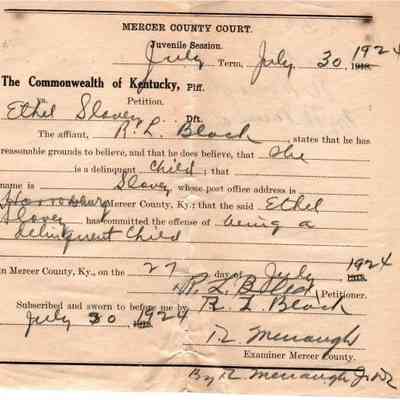 MERCER COUNTY COURT.
Juvenile Session.
July Term, July 30 1924
The Commonwealth of Kentucky, Plff.
vs. Petition.
Ethel Slovey Dft.
The affiant, R. L. Black, states that he has
reasonable grounds to believe, and that he does believe, that she
is a delinquent Child; that
name is Slovey whose post office address is
Mercer County, Ky; that the said Ethel
Slovey has committed the offense of being a
delinquent Child
in Mercer County, Ky., on the 27 day of July, 1924
R. L. Black Petitioner.
Subscribed and sworn to before me by R. L. Black
July 30 1924
Examiner Mercer County.
By